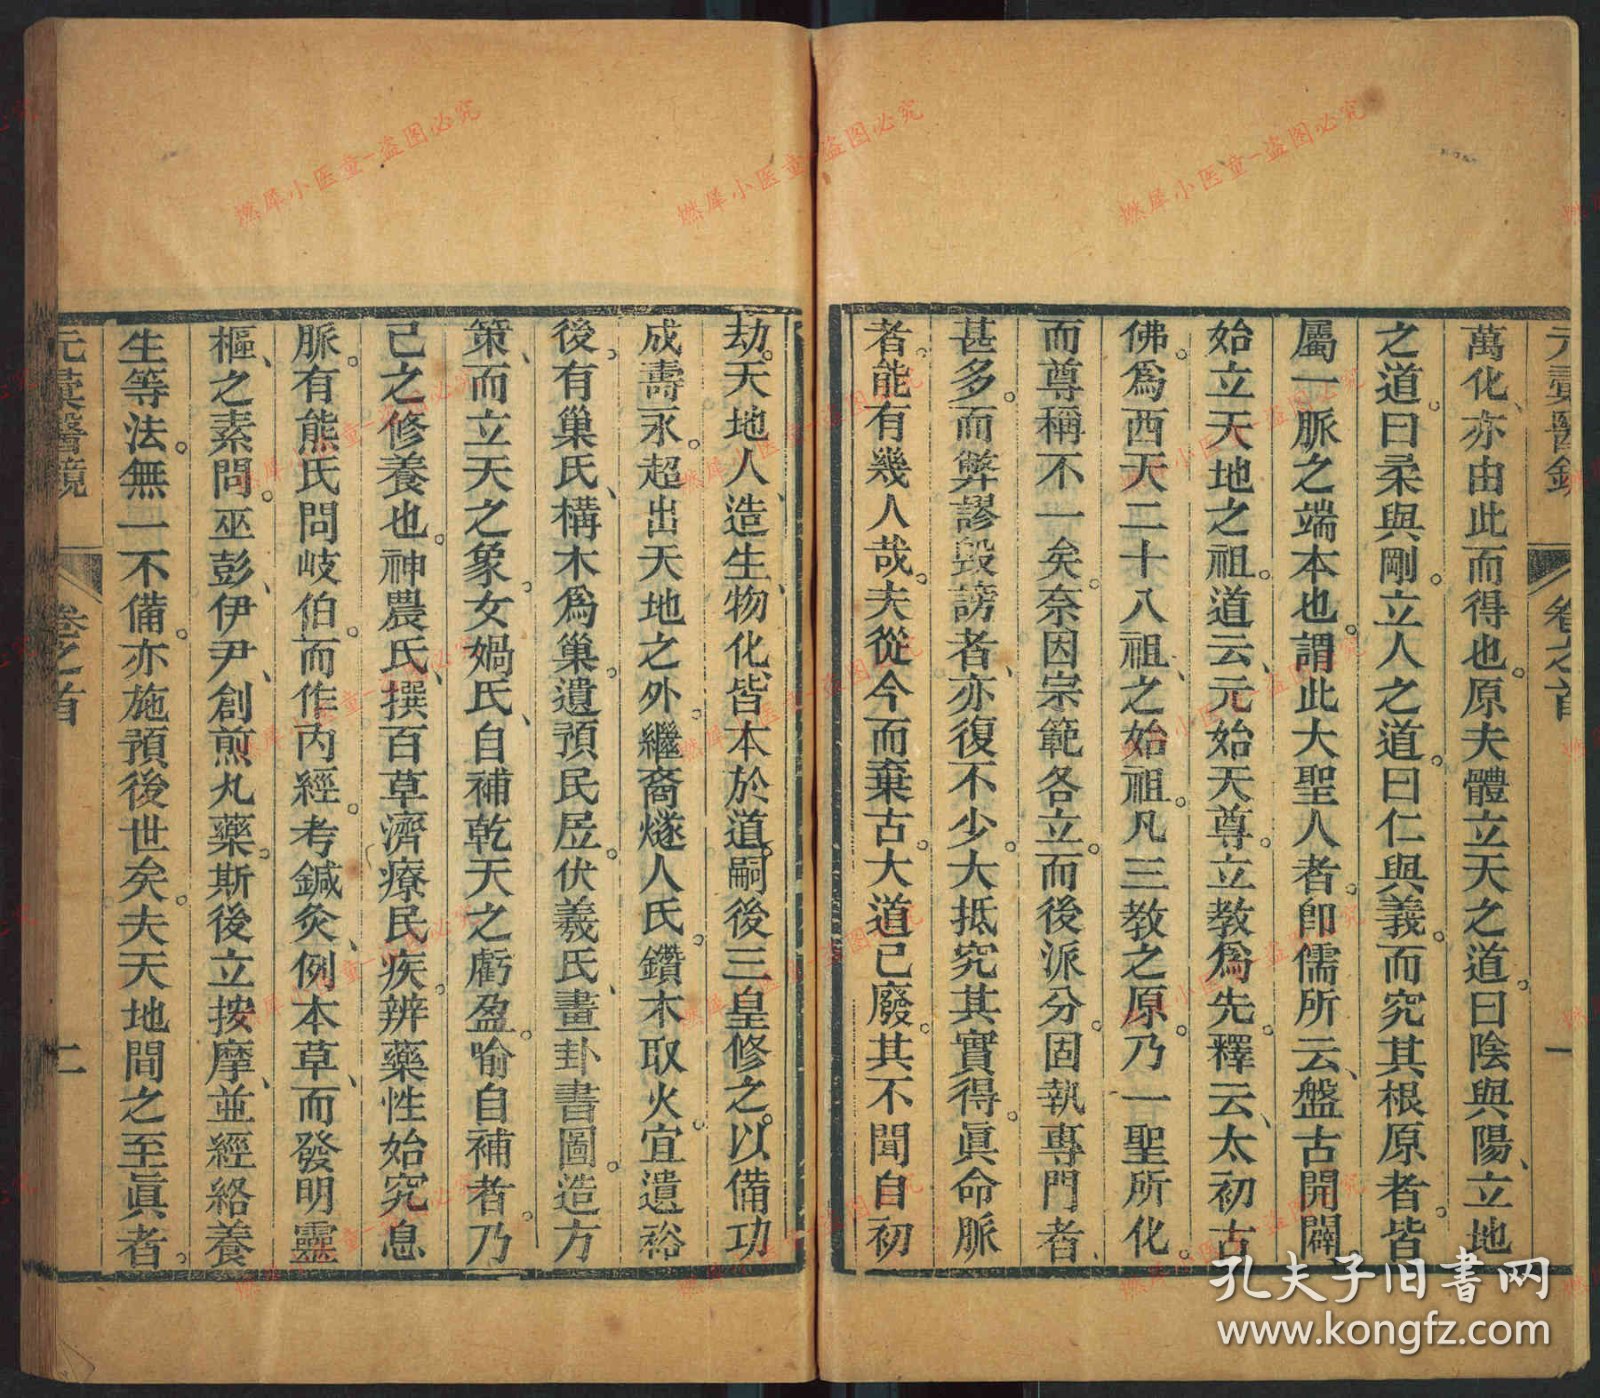 元彙醫鏡
卷之首
一
萬化、亦由此而得也。原夫體立天之道。曰陰與陽、立地
之道。曰柔與剛。立人之道。曰仁與義。而究其根原者。皆
屬一脈之端本也。謂此大聖人者。卽儒所云、盤古開闢
始立天地之祖。道云、元始天尊。立教爲先。釋云、太初古
佛。爲西天二十八祖、之始祖。凡三教之原。乃一聖所化。
而尊稱不一矣。奈因宗範各立。而後派分。固執專門者、
甚多。而弊謬毀謗者、亦復不少。大抵究其實得。眞命脈
者、能有幾人哉。夫從今而棄古。大道已廢。其不聞自初
劫。天地人、造生、物化、皆本於道。嗣後三皇修之。以備功
成壽永。超出天地之外。繼裔燧人氏。鑽木取火。宜遺裕
後。有巢氏、構木爲巢。遺預民居。伏羲氏、畫卦書圖。造方
策、而立天之象。女媧氏、自補乾天之虧盈。喻自補者。乃
己之修養也。神農氏、撰百草濟療民疾。辨藥性始究息
脈。有熊氏問岐伯。而作內經。考鍼灸、例本草、而發明靈
樞、之素問。巫彭、伊尹、創煎丸藥。斯後立按摩、並經絡養
生等法。無一不備。亦施預後世矣。夫天地間之至眞者。
元彙醫鏡
卷之首
二
孔夫子旧书网
www.kongfz.com
燃犀小医童-盗图必究